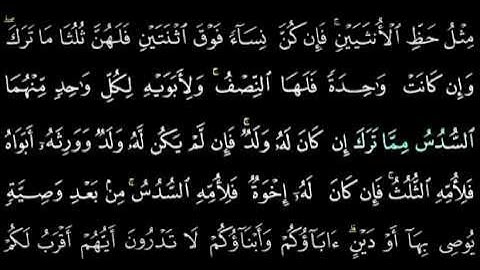 مِثْلُ حَظِّ ٱلْأُنثَيَيْنِ ۚ فَإِن كُنَّ نِسَآءً فَوْقَ ٱثْنَتَيْنِ فَلَهُنَّ ثُلُثَا مَا تَرَكَ ۖ
وَإِن كَانَتْ وَٰحِدَةً فَلَهَا ٱلنِّصْفُ ۚ وَلِأَبَوَيْهِ لِكُلِّ وَٰحِدٍ مِّنْهُمَا
ٱلسُّدُسُ مِمَّا تَرَكَ إِن كَانَ لَهُۥ وَلَدٌ ۚ فَإِن لَّمْ يَكُن لَّهُۥ وَلَدٌ وَوَرِثَهُۥٓ أَبَوَاهُ
فَلِأُمِّهِ ٱلثُّلُثُ ۚ فَإِن كَانَ لَهُۥٓ إِخْوَةٌ فَلِأُمِّهِ ٱلسُّدُسُ ۚ مِنۢ بَعْدِ وَصِيَّةٍ
يُوصِى بِهَآ أَوْ دَيْنٍ ۗ ءَابَآؤُكُمْ وَأَبْنَآؤُكُمْ لَا تَدْرُونَ أَيُّهُمْ أَقْرَبُ لَكُمْ